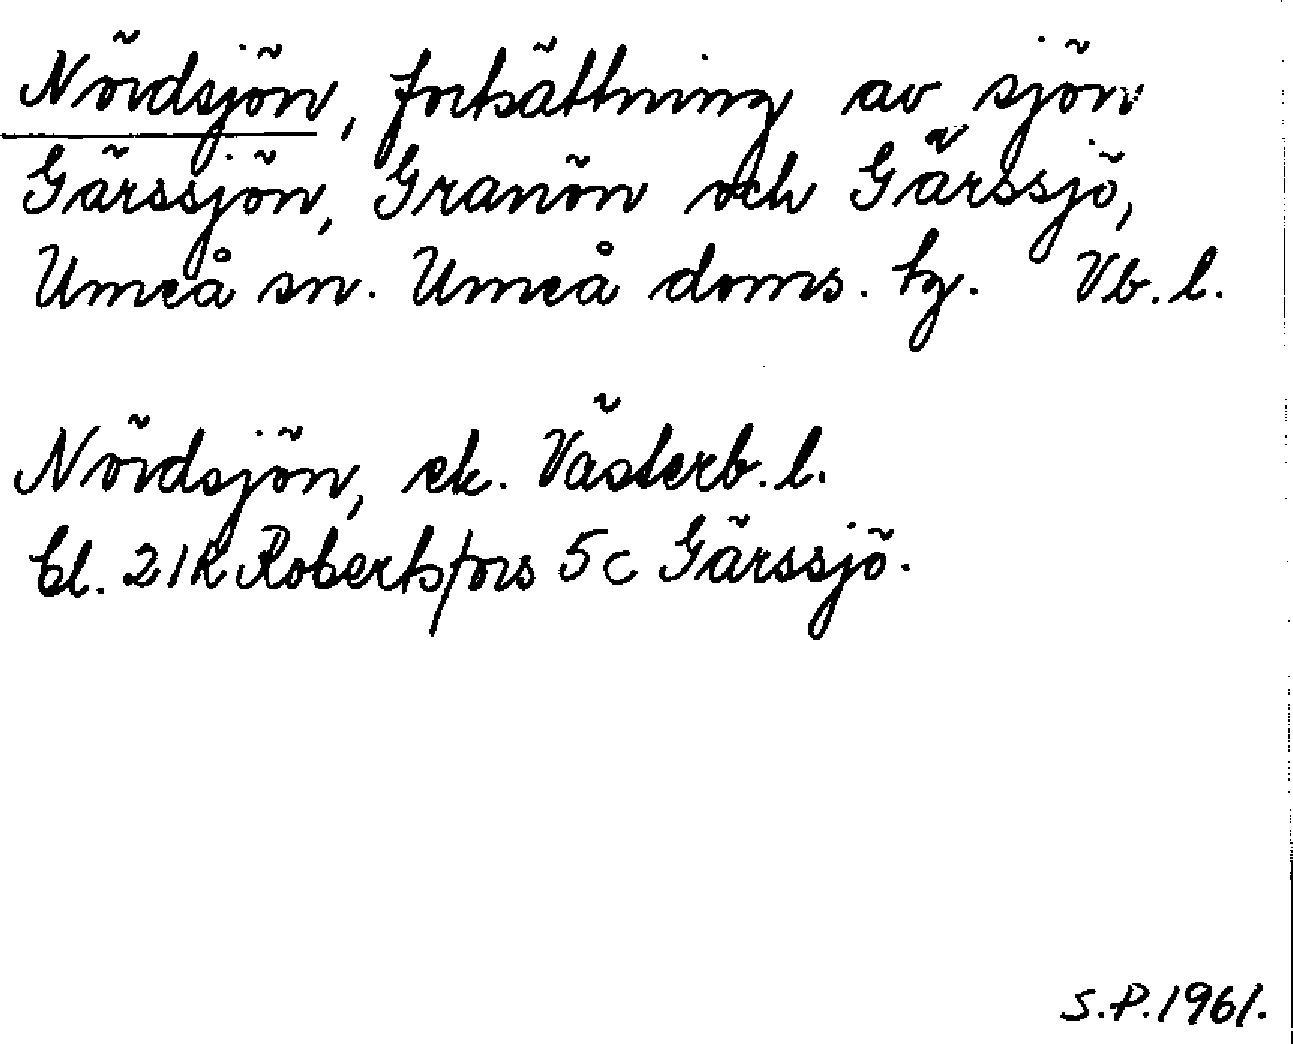 Nördsjön, fortsättning av sjön
Gärssjön, Granön och Gärssjö,
Umeå sn. Umeå doms. tg. Vb. l.
Nördsjön, ek. Västerb. l.
bl. 21K Robertsfors 5c Gärssjö.
S.P. 1961.